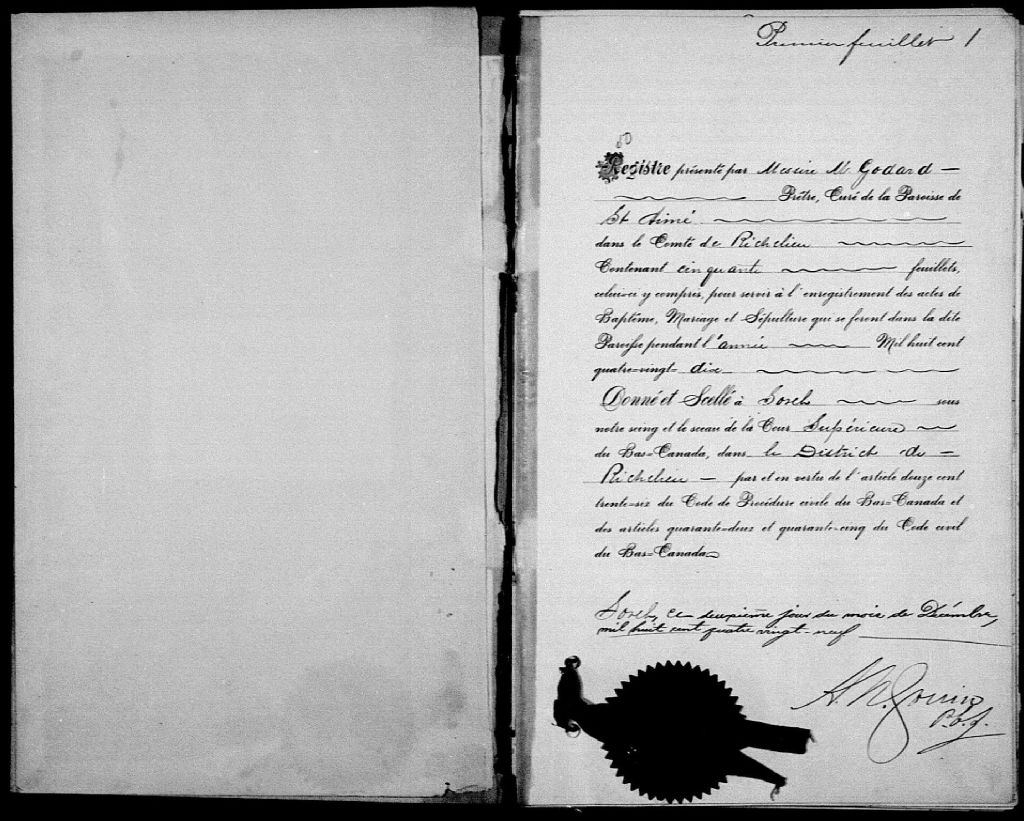 Premier feuillet 1
Registre présenté par Messire M Godard —
Prêtre, Curé de la Paroisse de
St Aimé
dans le Comté de Richelieu
Contenant cinquante feuillets,
celui-ci y compris, pour servir à l'enregistrement des actes de
Baptême, Mariage et Sépulture qui se feront dans la dite
Paroisse pendant l'année Mil huit cent
quatre-vingt-dix
Donné et Scellé à Sorel sous
notre seing et le sceau de la Cour Supérieure
du Bas-Canada, dans le District de —
Richelieu — par et en vertu de l'article douze cent
trente-six du Code de Procédure civile du Bas-Canada et
des articles quarante-deux et quarante-cinq du Code civil
du Bas-Canada
Sorel, ce deuxième jour du mois de Décembre,
mil huit cent quatre vingt-neuf
A. N. Gouin
P.C.S.